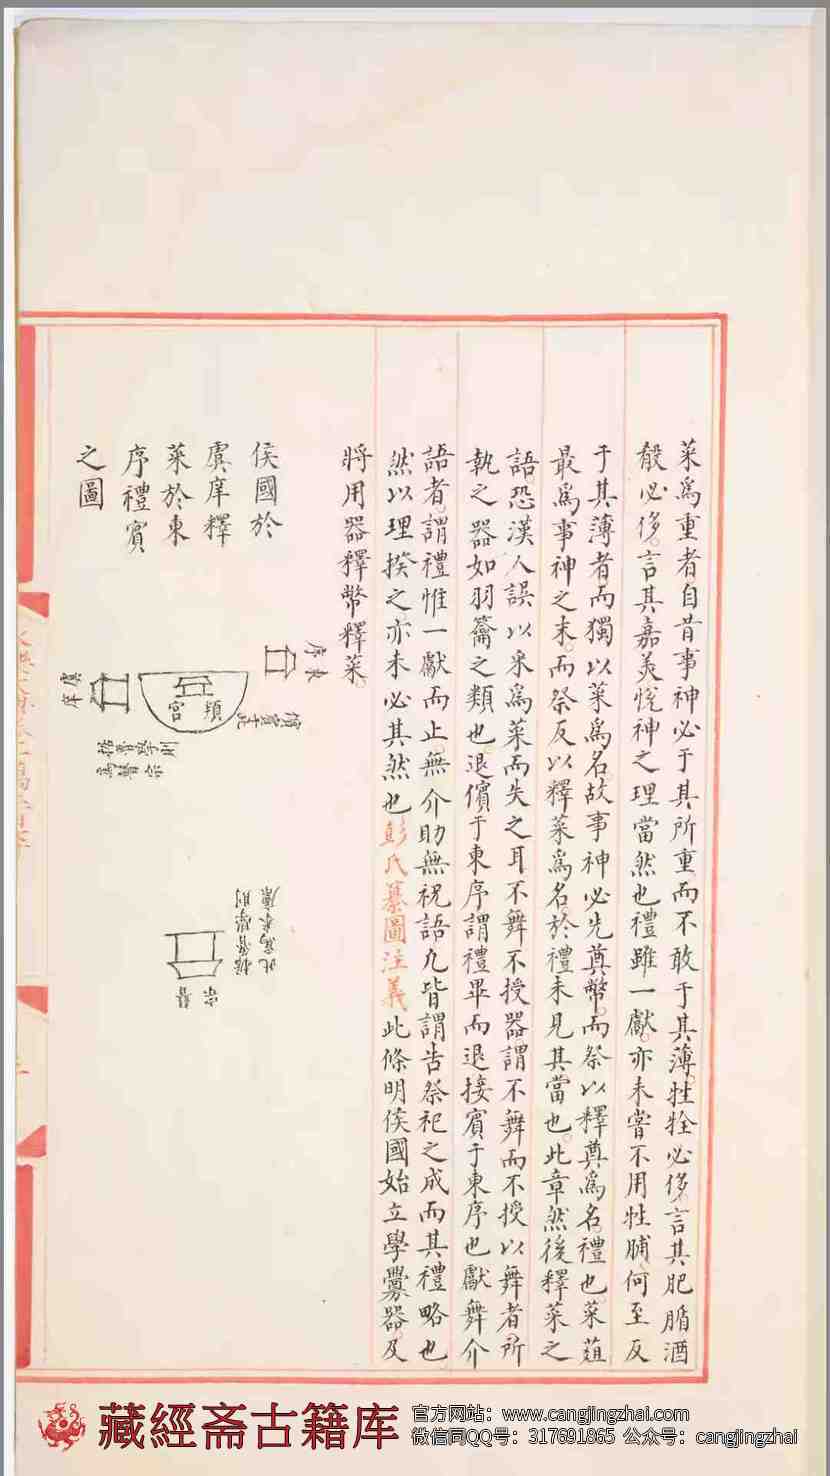 菜爲重者自昔事神必于其所重而不敢于其薄牲牷必侈言其肥腯酒
殽必侈言其嘉美悅神之理當然也禮雖一獻亦未嘗不用牲脯何至反
于其薄者而獨以菜爲名故事神必先奠幣而祭以釋奠爲名禮也菜葅
最爲事神之末而祭反以釋菜爲名於禮未見其當也此章然後釋菜之
語恐漢人誤以采爲菜而失之耳不舞不授器謂不舞而不授以舞者所
執之器如羽籥之類也退儐于東序謂禮畢而退接賓于東序也獻舞介
語者謂禮惟一獻而止無介助無祝語凡皆謂告祭祀之成而其禮略也
然以理揆之亦未必其然也彭氏纂圖注義此條明侯國始立學釁器及
將用器釋幣釋菜
侯國於
虞庠釋
菜於東
序禮賓
之圖
東序
頖宮
虞庠
儐賓于此
指魯學則
為瞽宗
指魯學則
此為米廩
瞽宗
藏經斋古籍库
官方网站：www.cangjingzhai.com
微信同QQ号：317691865 公众号：cangjingzhai